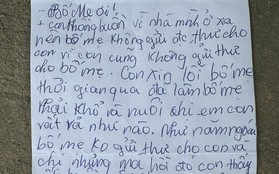 - Bố Mẹ ơi!
+ con thông buồn vì nhà mình ở xa
nên bố mẹ không gửi đc thư cho
con vì con cũng không gửi thư
cho bố mẹ. Con xin lỗi bố mẹ
thời gian qua đã làm bố mẹ
phải khổ và nuôi chị em con
vất vả như nào. Như năm ngoái
bố mẹ ko gửi thư cho con và
chị nhưng mà hồi đó con thấy